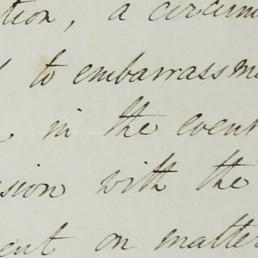 tion, a circum
to embarrassm
in the event
sion with the
ent on matter